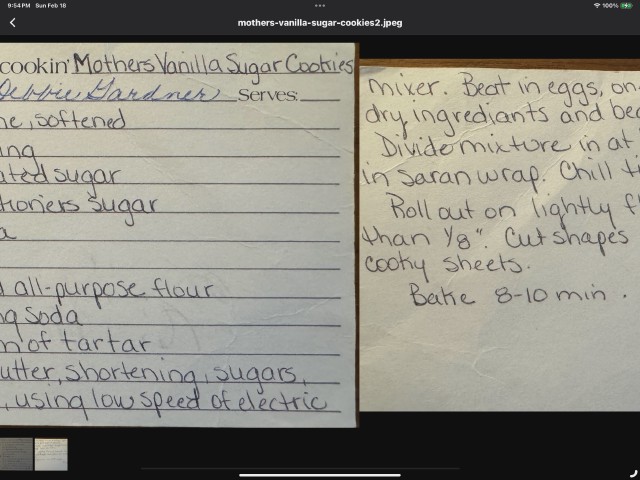 9:54 PM Sun Feb 18
100%
mothers-vanilla-sugar-cookies2.jpeg
cookin' Mothers Vanilla Sugar Cookies
Debbie Gardner Serves:
ne, softened
ing
ated sugar
tioners sugar
a
all-purpose flour
ng soda
m of tartar
utter, shortening, sugars,
, using low speed of electric
mixer. Beat in eggs, on
dry ingrediants and bea
Divide mixture in at
in saran wrap. Chill
Roll out on lightly f
than 1/8". Cut shapes
cooky sheets.
Bake 8-10 min.